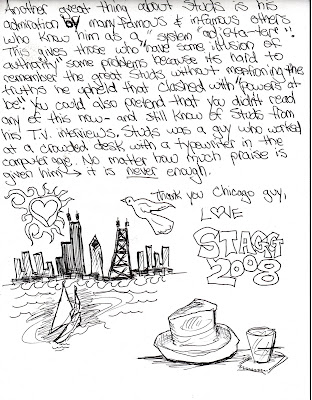 Another great thing about Studs is his
admiration by many famous & infamous others
who knew him as a "system" "ad jota-tere"!
This gives those who "have some illusion of
authority" some problems because its hard to
remember the great Studs without mentioning the
truths he upheld that clashed with "powers at
be!" You could also pretend that you didn't read
any of this now - and still know of Studs from
his T.V. interviews. Studs was a guy who worked
at a crowded desk with a typewriter in the
computer age. No matter how much praise is
given him → it is never enough.
Thank you Chicago guy,
LOVE
STAGGT
2008